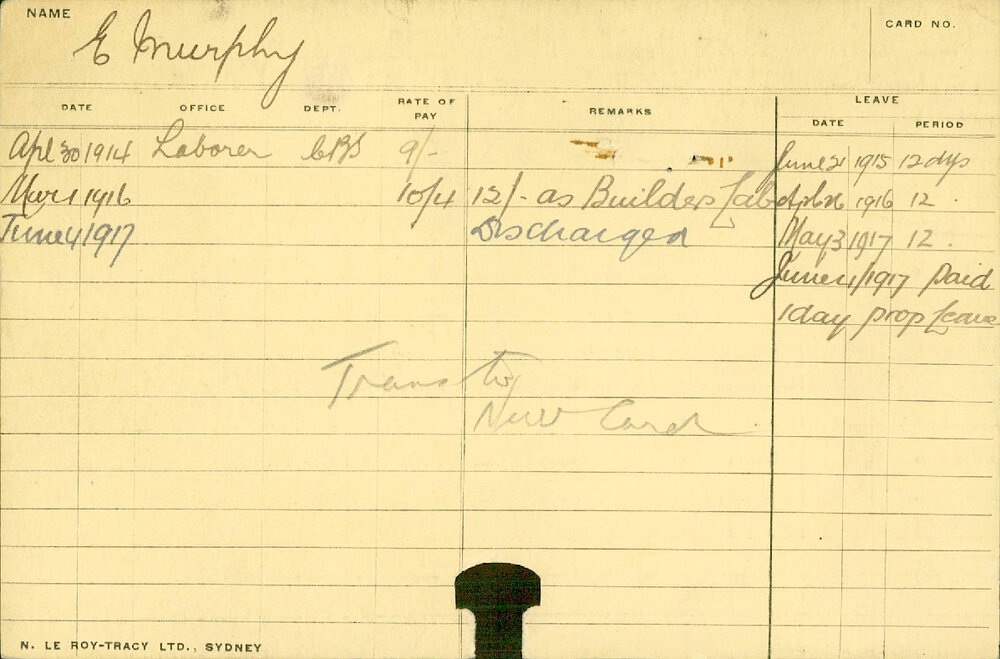 NAME
E Murphy
CARD NO.
DATE OFFICE DEPT. RATE OF PAY REMARKS LEAVE
DATE PERIOD
Apl 30 1914 Laborer CBS 9/- June 21 1915 12 dys
Mar 1 1916 10/4 12/- as Builders Lab 1916 12
June 4 1917 Discharged May 3 1917 12
June 4/1917 Paid
1 day prop Leave
Trans to
New Card
N. LE ROY-TRACY LTD., SYDNEY